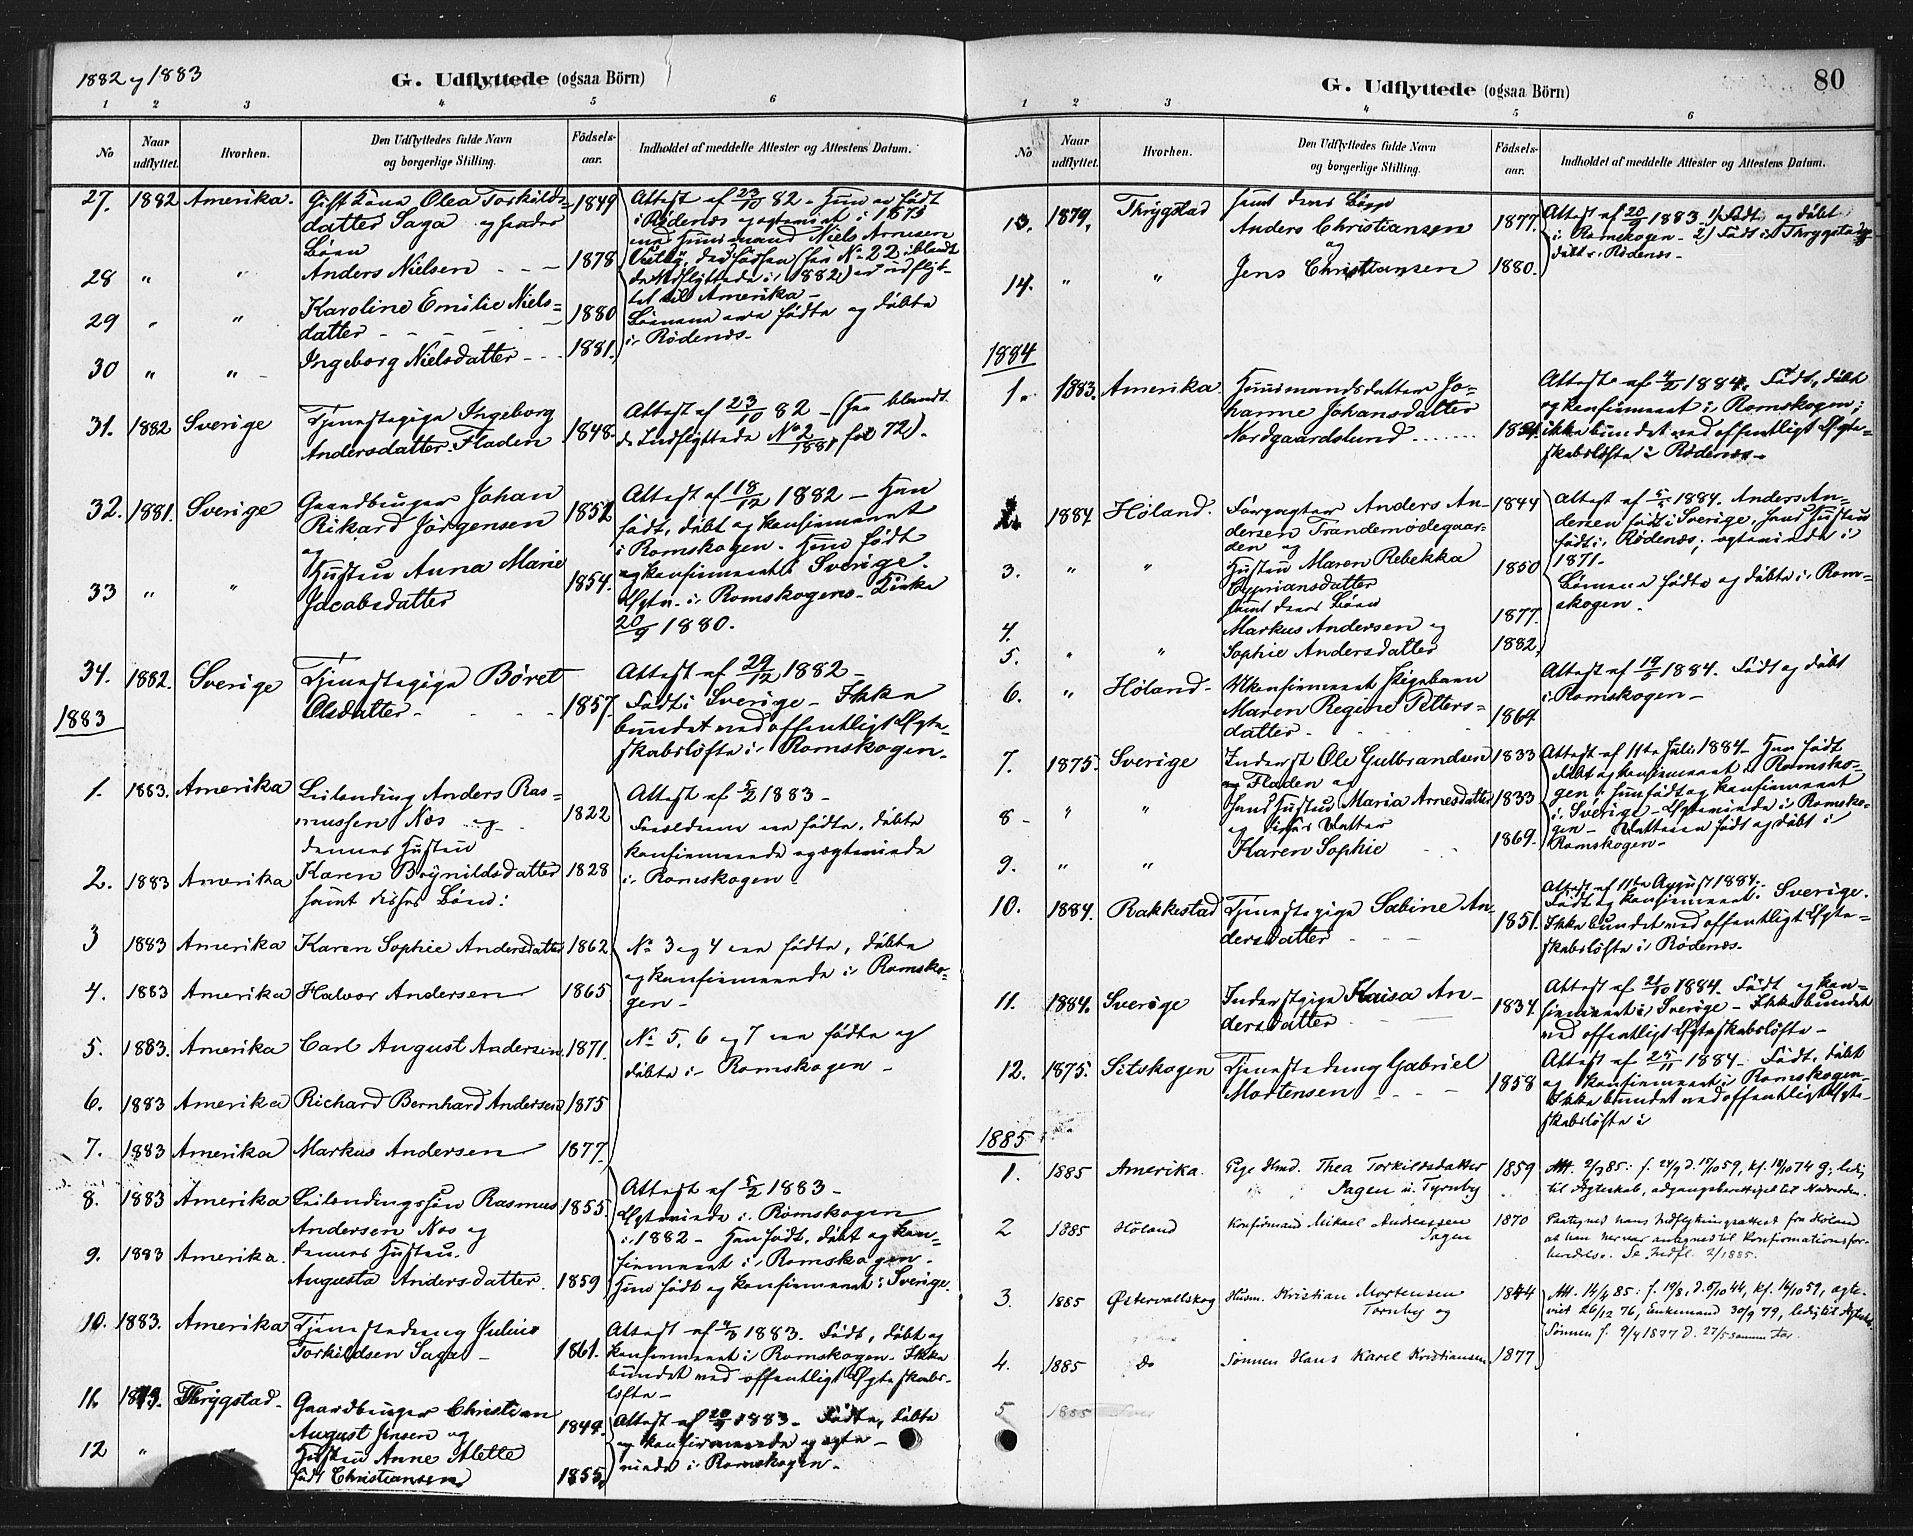 1882 og 1883
G. Udflyttede (ogsaa Börn)
1 2 3 4 5 6
No
Naar udflyttet.
Hvorhen.
Den Udflyttedes fulde Navn og borgerlige Stilling.
Födsels-aar.
Indholdet af meddelte Attester og Attestens Datum.
27. 1882 Amerika. Gift Kone Olea Torkilds- 1849 Attest af 23/10 82 - Hun er født
datter Saga og hendes i Rødenæs og egteviet i 1873
Børn med Huusmand Niels Arnesen
28 " " Anders Nielsen 1878
de Udflyttede i 1882) er udflyt-
tet til Amerika -
29 " " Karoline Emilie Niels- 1880 Børnene ere fødte og døbte
datter i Rødenæs.
30 " " Ingeborg Nielsdatter 1881.
31. 1882 Sverige Tjenestepige Ingeborg 1848. Attest af 23/10 82 - (see blandt
Andersdatter Fladen de Indflyttede No 2/1881 fol 72).
32. 1881. Sverige Gaardbruger Johan 1852 Attest af 18/12 1882 - Han
Rikard Jørgensen født, døbt og konfirmeret
og i Romskogen. Hun født
33 " " Hustru Anna Marie 1854. og konfirmeret i Sverige.
Jacobsdatter Egtev. i Romskogens Kirke
20/9 1880.
34. 1882. Sverige Tjenestepige Børet 1857. Attest af 29/12 1882 -
Olsdatter Født i Sverige - Ikke
bundet ved offentligt Egte-
skabsløfte i Romskogen.
1883
1. 1883. Amerika Leilending Anders Ras- 1822 Attest af 5/2 1883 -
mussen Nos og Forældrene ere fødte, døbte
dennes Hustru konfirmerede og egteviede
2. 1883 Amerika Karen Brynildsdatter 1828 i Romskogen
samt disses Børn:
3 1883 Amerika Karen Sophie Andersdatter 1862 No 3 og 4 ere fødte, døbte
og konfirmerede i Romsko-
4. 1883 Amerika Halvor Andersen 1865 gen -
5. 1883. Amerika Carl August Andersen 1871. No 5, 6 og 7 ere fødte og
døbte i Romskogen -
6. 1883 Amerika Richard Bernhard Andersen 1875
7. 1883 Amerika Markus Andersen 1877
8. 1883 Amerika Leilendingssøn Rasmus 1855. Attest af 5/2 1883 -
Andersen Nos og Egteviede i Romskogen
dennes Hustru i 1882 - Han født, døbt og kon-
9. 1883 Amerika. Augusta Andersdatter 1859 firmeret i Romskogen.
Hun født og konfirmeret i Sverige.
10. 1883. Amerika Tjenestedreng Julius 1861. Attest af 4/3 1883. Født, døbt og
Torkildsen Saga konfirmeret i Romskogen. Ikke
bundet ved offentligt Egteskabs-
løfte -
11. Thrygstad. Gaardbruger Christian 1849. Attest af 20/9 1883 - Fødte, døbte
August Jensen og og konfirmerede og egte-
12 " Hustru Anne Alette 1855. viede i Romskogen.
født Christiansen
80
G. Udflyttede (ogsaa Börn)
1 2 3 4 5 6
No
Naar udflyttet.
Hvorhen.
Den Udflyttedes fulde Navn og borgerlige Stilling.
Födsels-aar.
Indholdet af meddelte Attester og Attestens Datum.
13. 1879. Thrygstad samt deres Børn
Anders Christiansen 1877. Attest af 20/9 1883 1) Født og døbt
og i Romskogen - 2) Født i Thrygstad
14. " " Jens Christiansen 1880. døbt i Rødenæs -
1884
1. 1883. Amerika Huusmandsdatter Jo- Attest af 4/2 1884. Født, døbt
hanne Johansdatter og konfirmeret i Romskogen;
Nordgaardslund ikke bundet ved offentligt Egte-
skabsløfte i Rødenæs -
1884 Høland. Forpagter Anders An- 1844 Attest af 5/5 1884. Anders An-
dersen Trandemødegaar- dersen født i Sverige, hans Hustru
den og født i Rødenæs; egteviede i
3. " " Hustru Maren Rebekka 1850 1871.
Cypriansdatter Børnene fødte og døbte i Rom-
samt deres Børn skogen.
4. Markus Andersen og 1877.
5. " " Sophie Andersdatter 1882.
6. " " Høland - Ukonfirmeret Pigebarn Attest af 19/5 1884. Født og døbt
Maren Regine Petters- 1869 i Romskogen -
datter
7. 1875. Sverige Inderst Ole Gulbrandsen 1833 Attest af 11te Juli 1884 - Han født
Fladen og døbt og konfirmeret i Romsko-
8 " " hans Hustru Maria Arnesdatter 1833 gen, hun født og konfirmeret
og disses Datter i Sverige - Egteviede i Romsko-
9. " " Karen Sophie 1869. gen - Datteren født og døbt i
Romskogen -
10. 1884. Rakkestad Tjenestepige Sabine An- 1851. Attest af 11te August 1884.
dersdatter Født og konfirmeret i Sverige.
Ikke bundet ved offentligt Egte-
skabsløfte i Rødenæs.
11. 1884. Sverige Inderstpige Kaisa An- 1834. Attest af 21/10 1884. Født og kon-
dersdatter firmeret i Sverige - Ikke bundet
ved offentligt Egteskabsløfte -
12. 1875. Setskogen Tjenestedreng Gabriel 1858 Attest af 25/11 1884 - Født, døbt
Mortensen og konfirmeret i Romskogen.
Ikke bundet ved offentligt Egte-
skabsløfte i
1885
1. 1885 Amerika. Pige Thea Torkildsdatter 1859 Att. 2/3 85: f. 24/9 d. 17/10 59, kf. 18/10 74 G; ledig
Sagen u. Tyrnby til Ægteskab, adgangsberettiget til Nadverden.
2 1885 Høland Konfirmand Mikael Andreassen 1870 Paategned hans Indflytningsattest fra Høland
Sagen at han her var antegnet til Konfirmationsfor-
beredelse. Se Indfl. 2/1885.
3. 1885 Østervallskog Husm. Kristian Mortensen 1844 Att. 14/4 85: f. 19/8, d. 6/10 44, kf. 16/10 59, egte-
Tornby og viet 26/12 76, Enkemand 30/9 79, ledig til Ægtesk.
Sønnen f. 9/4 1877 d. 27/5 samme Aar.
4. 1885 do Sønnen Hans Karel Kristiansen 1877
5 1885